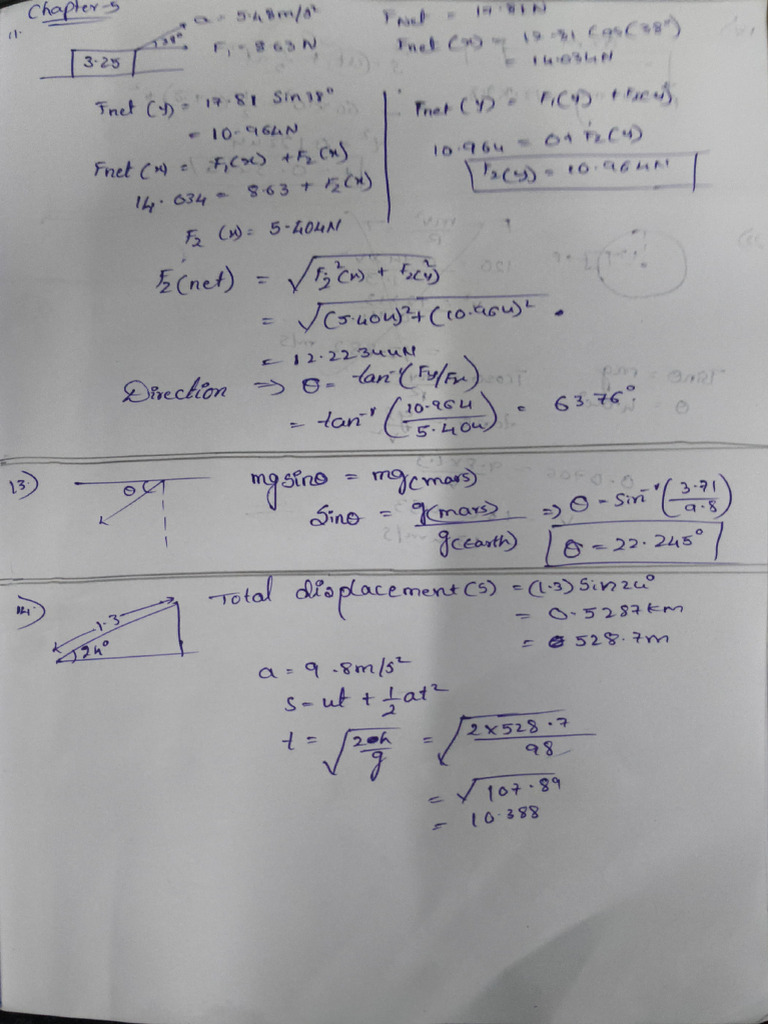 Chapter-5
11.
a = 5.48m/s²
38°
3.25
F₁ = 8.63 N
Fnet = 17.81N
Fnet (x) = 17.81 Cos(38°)
= 14.034N
Fnet (y) = 17.81 Sin38°
= 10.964N
Fnet (x) = F₁(x) + F₂(x)
14.034 = 8.63 + F₂(x)
F₂ (x) = 5.404N
Fnet (y) = F₁(y) + F₂(y)
10.964 = 0 + F₂(y)
F₂(y) = 10.964N
F₂(net) = √F₂²(x) + F₂(y)²
= √(5.404)² + (10.964)²
= 12.2234N
Direction ⇒ θ = tan⁻¹(Fy/Fx)
= tan⁻¹(10.964/5.404) = 63.76°
13.)
θ
mgsinθ = mg(mars)
Sinθ = g(mars)/g(earth) ⇒ θ = Sin⁻¹(3.71/9.8)
θ = 22.245°
14.)
1.3
24°
Total displacement(s) = (1.3) Sin24°
= 0.5287km
= 528.7m
a = 9.8m/s²
s = ut + ½at²
t = √2h/g = √2×528.7/98
= √107.89
= 10.388